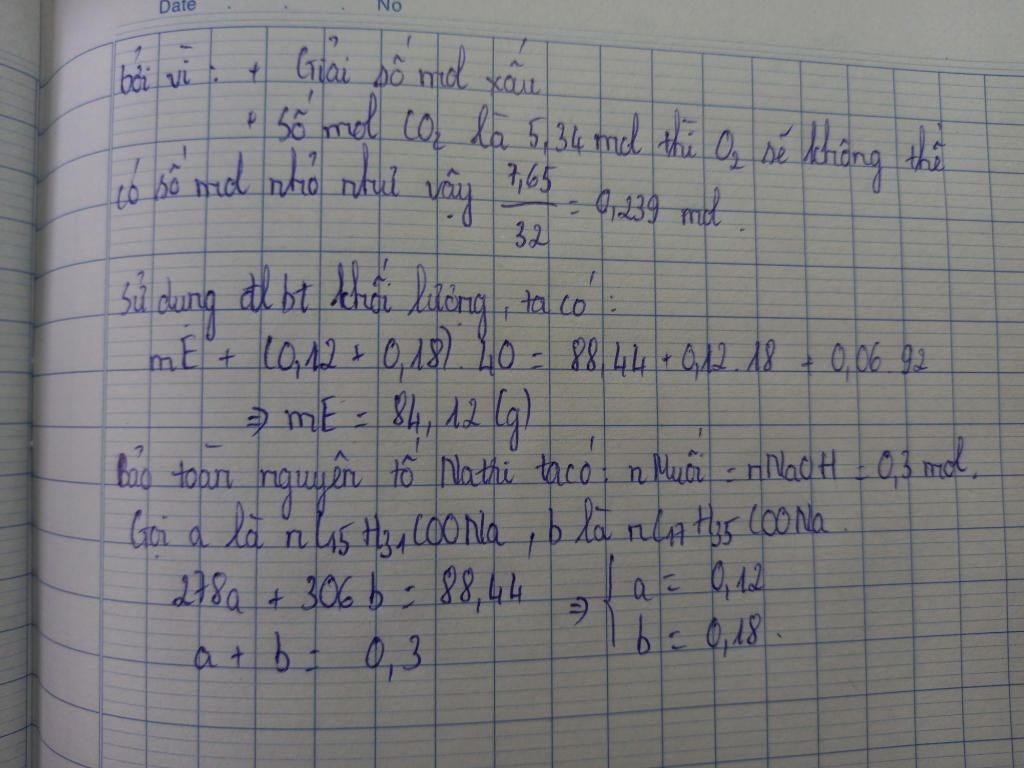 Date No
bởi vì: + Giải số mol xấu
+ Số mol CO2 là 5,34 mol thì O2 sẽ không thể
có số mol nhỏ như vậy 7,65/32 = 0,239 mol.
Sử dụng đl bt khối lượng, ta có:
mE + (0,12 + 0,18).40 = 88,44 + 0,12.18 + 0,06.92
⇒ mE = 84,12 (g)
Bảo toàn nguyên tố Na thì ta có: nMuối = nNaOH = 0,3 mol.
Gọi a là nC15H31COONa, b là nC17H35COONa.
278a + 306b = 88,44 ⇒ { a = 0,12
a + b = 0,3 b = 0,18.